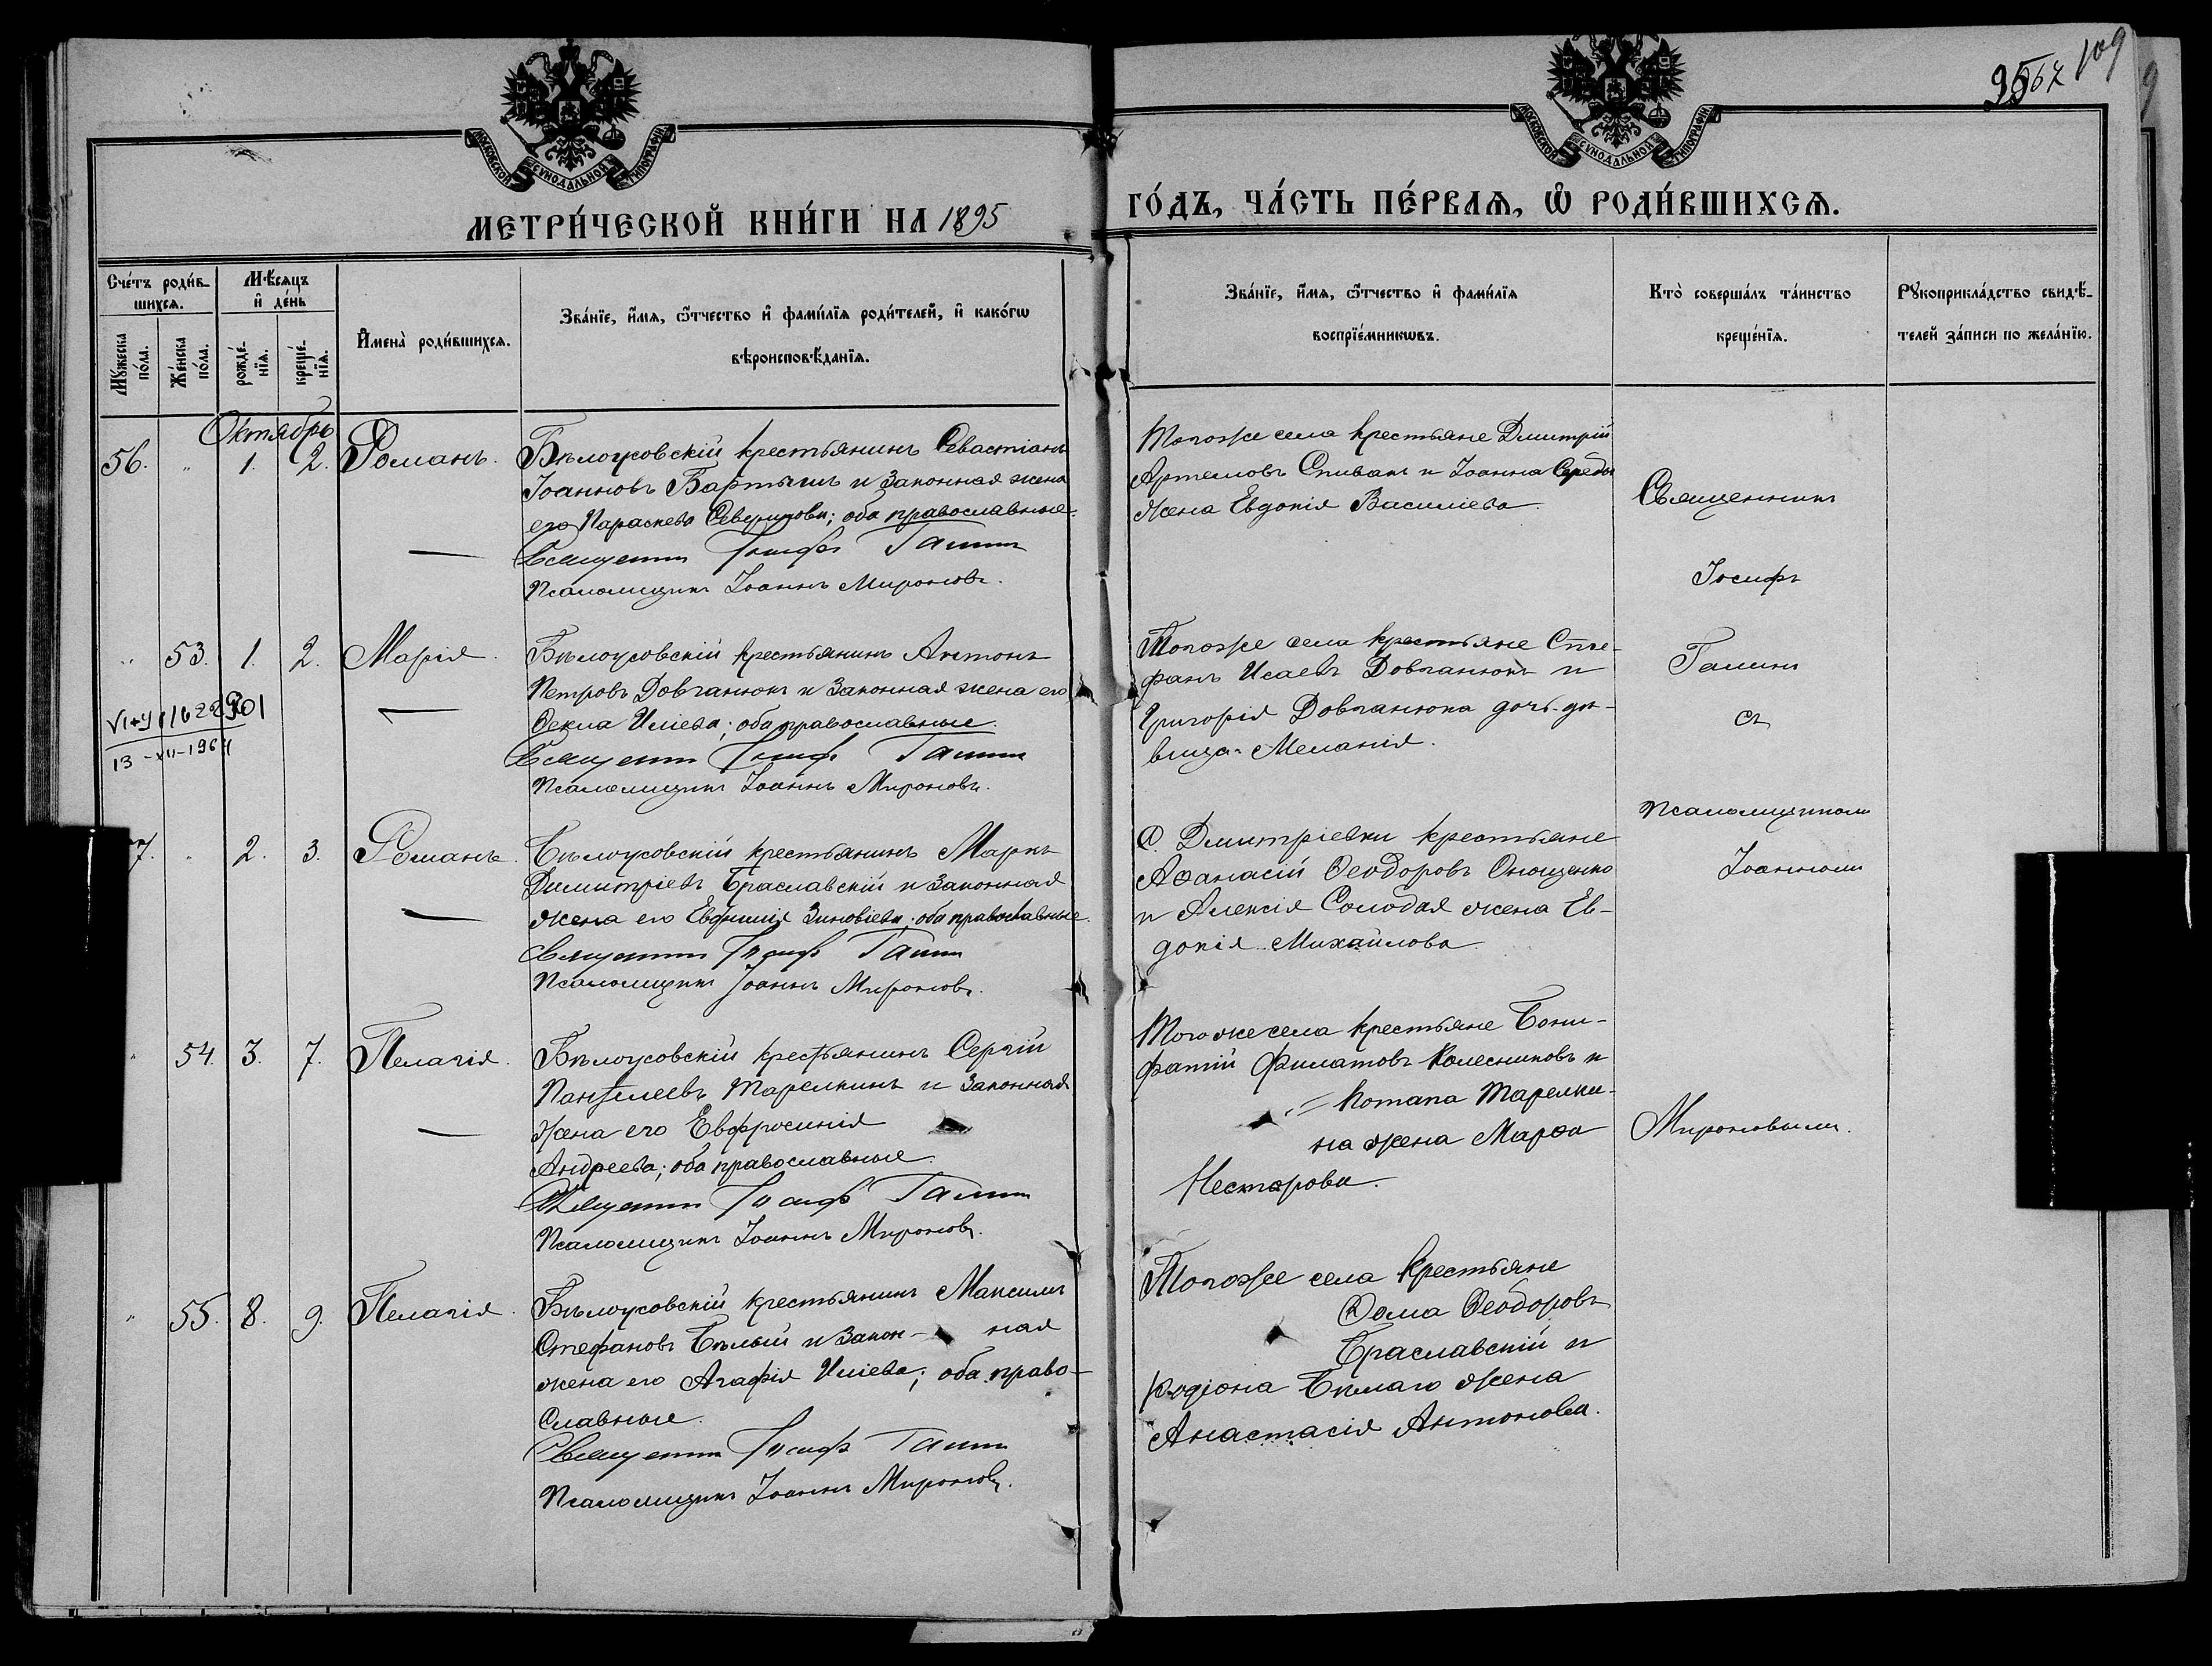 МОСКОВСКОЙ СѴНОДАЛЬНОЙ ТИПОГРАФІИ
МОСКОВСКОЙ СѴНОДАЛЬНОЙ ТИПОГРАФІИ
95
109
МЕТРИ́ЧЕСКОЙ КНИ́ГИ НА 1895
ГО́ДЪ, ЧА́СТЬ ПЕ́РВАѦ, Ѡ҆ РОДИ́ВШИХСѦ.
Сче́тъ роди́в-
шихсѧ.
Мꙋ́жеска
по́ла.
Же́нска
по́ла.
Мѣ́сѧцъ
и҆ де́нь
рожде́-
нїѧ.
креще́-
нїѧ.
И҆мена̀ роди́вшихсѧ.
Зва́нїе, и҆́мѧ, ѻ҆́тчество и҆ фами́лїѧ роди́телей, и҆ како́гѡ
вѣроисповѣ́данїѧ.
Зва́нїе, и҆́мѧ, ѻ҆́тчество и҆ фами́лїѧ
воспрїе́мникѡвъ.
Кто̀ соверша́лъ та́инство
креще́нїѧ.
Рꙋкоприкла́дство свидѣ́-
телей за́писи по жела́нїю.
Октябрь
56. " 1. 2. Романъ.
Бѣлоусовскій крестьянинъ Севастіанъ
Іоанновъ Бартышъ и законная жена
его Параскева Северинова; оба православные.
Священникъ Іосифъ Галинъ
Псаломщикъ Іоаннъ Мироновъ.
Тогоже села крестьяне Димитрій
Артемовъ Спивакъ и Іоанна Середы
жена Евдокія Василіева.
" 53. 1. 2. Марія.
Бѣлоусовскій крестьянинъ Антонъ
Петровъ Довганюкъ и законная жена его
Ѳекла Иліева; оба православные.
Священникъ Іосифъ Галинъ
Псаломщикъ Іоаннъ Мироновъ.
Тогоже села крестьяне Сте-
фанъ Исаевъ Довганюкъ и
Григорія Довганюка дочь-дѣ-
вица Меланія.
13-XII-1964
7. " 2. 3. Романъ.
Бѣлоусовскій крестьянинъ Маркъ
Димитріевъ Браславскій и законная
жена его Евфимія Зиновіева; оба православные.
Священникъ Іосифъ Галинъ
Псаломщикъ Іоаннъ Мироновъ.
С. Дмитріевки крестьяне
Аѳанасій Ѳеодоровъ Онощенко
и Алексія Солодая жена Ев-
докія Михайлова.
" 54. 3. 7. Пелагія.
Бѣлоусовскій крестьянинъ Сергій
Пантелеевъ Тарелкинъ и законная
жена его Евфросинія
Андреева; оба православные.
Священникъ Іосифъ Галинъ
Псаломщикъ Іоаннъ Мироновъ.
Тогоже села крестьяне Бони-
фатій Филатовъ Колесниковъ и
Потапа Тарелки-
на жена Марѳа
Несторова.
" 55. 8. 9. Пелагія.
Бѣлоусовскій крестьянинъ Максимъ
Стефановъ Бѣлый и закон- ная
жена его Агафія Иліева; оба право-
славные.
Священникъ Іосифъ Галинъ
Псаломщикъ Іоаннъ Мироновъ.
Тогоже села крестьяне
Ѳома Ѳеодоровъ
Браславскій и
Родіона Бѣлаго жена
Анастасія Антонова.
Священникъ
Іосифъ
Галинъ
съ
Псаломщикомъ
Іоанномъ
Мироновымъ.